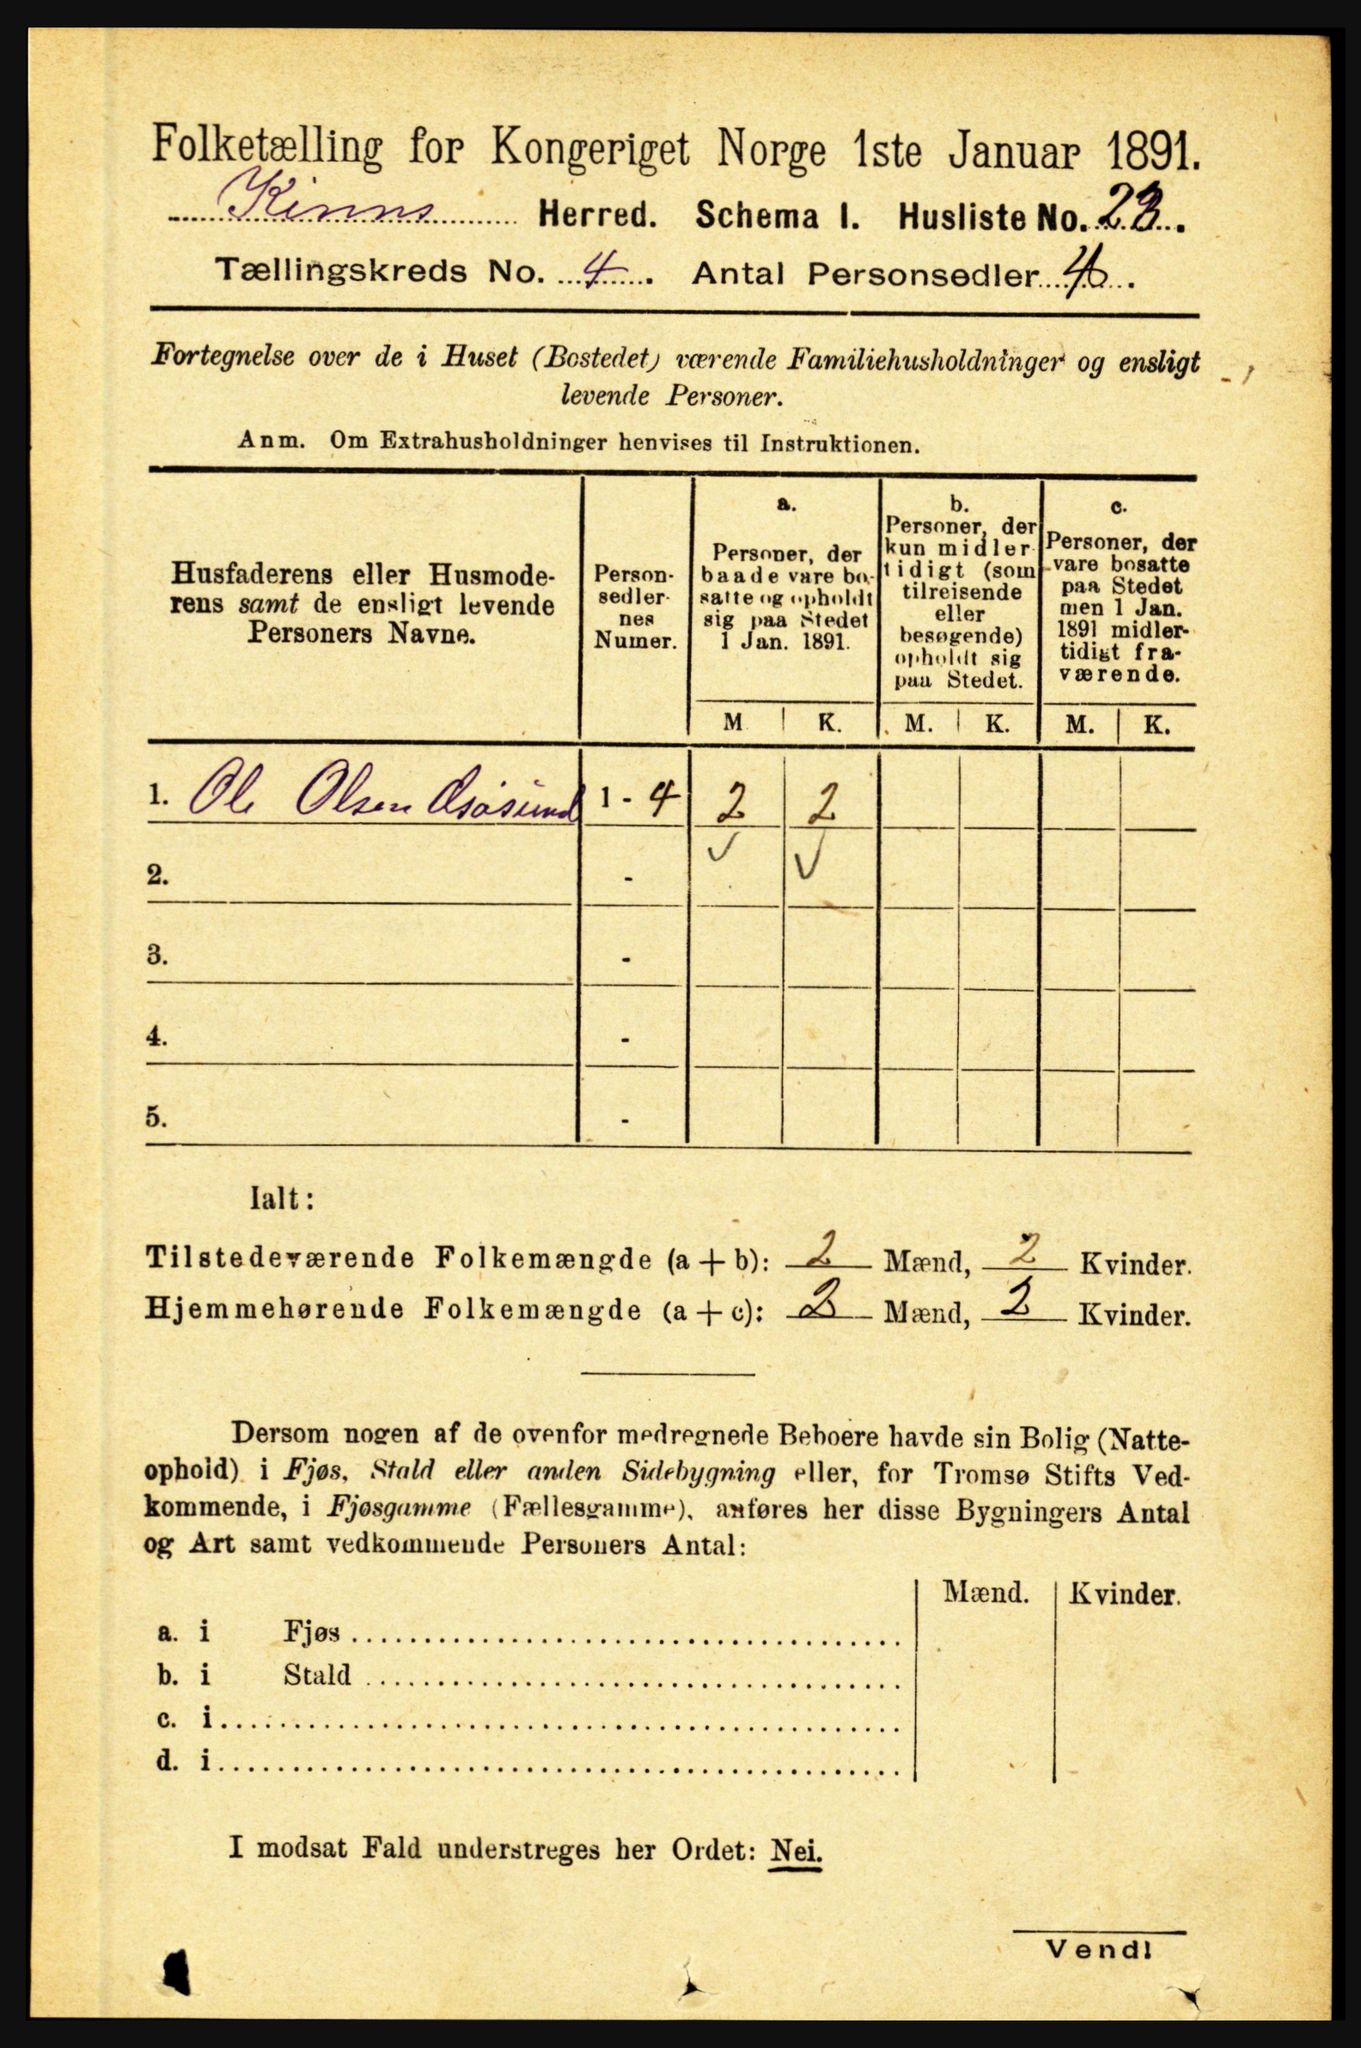 Folketælling for Kongeriget Norge 1ste Januar 1891.
Kinns Herred. Schema I. Husliste No. 23.
Tællingskreds No. 4. Antal Personsedler 4.
Fortegnelse over de i Huset (Bostedet) værende Familiehusholdninger og ensligt
levende Personer.
Anm. Om Extrahusholdninger henvises til Instruktionen.
Husfaderens eller Husmode-
rens samt de ensligt levende
Personers Navne.
Person-
sedler-
nes
Numer.
a.
Personer, der
baade vare bo-
satte og opholdt
sig paa Stedet
1 Jan. 1891.
b.
Personer, der
kun midler-
tidigt (som
tilreisende
eller
besøgende)
opholdt sig
paa Stedet.
c.
Personer, der
vare bosatte
paa Stedet
men 1 Jan.
1891 midler-
tidigt fra-
værende.
M K. M. K. M. K.
1. Ole Olsen 1 - 4 2 2
2. -
3. -
4. -
5. -
Ialt:
Tilstedeværende Folkemængde (a + b): 2 Mænd, 2 Kvinder.
Hjemmehørende Folkemængde (a + c): 2 Mænd, 2 Kvinder.
Dersom nogen af de ovenfor medregnede Beboere havde sin Bolig (Natte-
ophold) i Fjøs, Stald eller anden Sidebygning eller, for Tromsø Stifts Ved-
kommende, i Fjøsgamme (Fællesgamme), anføres her disse Bygningers Antal
og Art samt vedkommende Personers Antal:
Mænd. Kvinder.
a. i Fjøs
b. i Stald
c. i
d. i
I modsat Fald understreges her Ordet: Nei.
Vend!